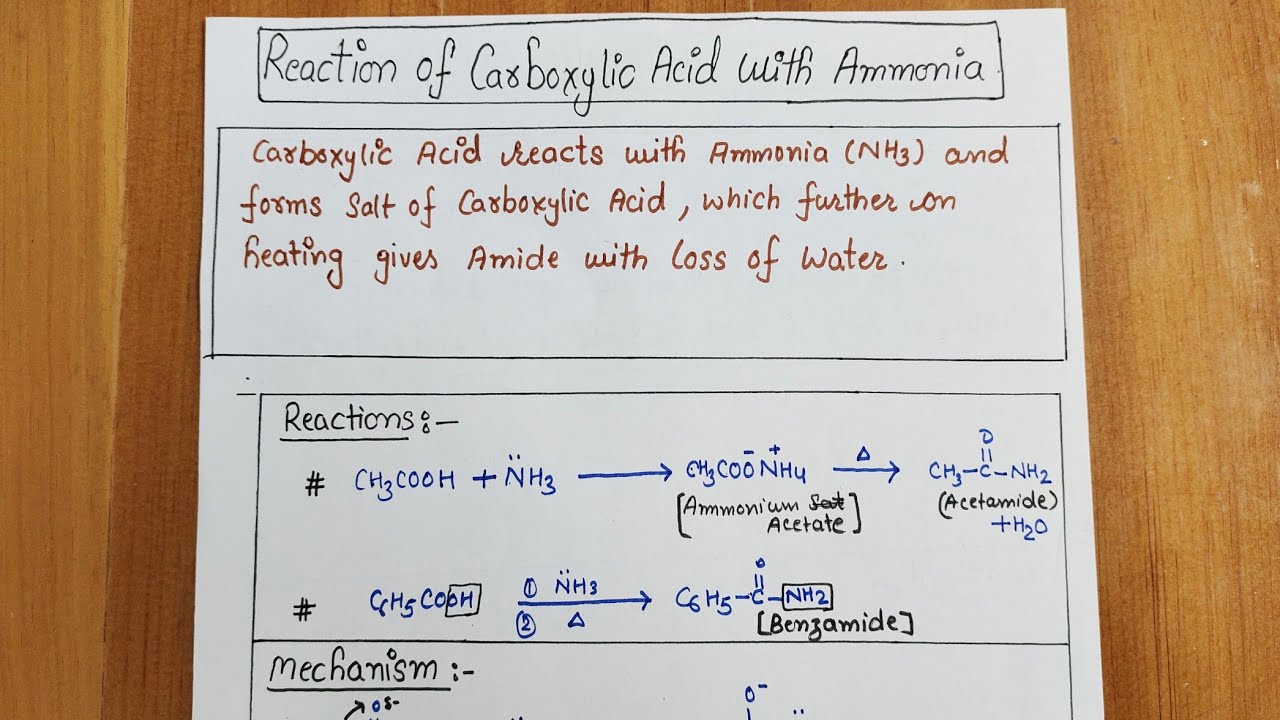 Reaction of Carboxylic Acid with Ammonia
Carboxylic Acid reacts with Ammonia (NH3) and
forms Salt of Carboxylic Acid, which further on
heating gives Amide with loss of Water.
Reactions:-
# CH3COOH + N̈H3 ⟶ CH3COO⁻ N⁺H4 —Δ→ CH3-C(=O)-NH2
[Ammonium Acetate] (Acetamide)
+H2O
# C6H5COOH ① N̈H3 ② Δ ⟶ C6H5-C(=O)-NH2
[Benzamide]
Mechanism:-
O δ-
O⁻